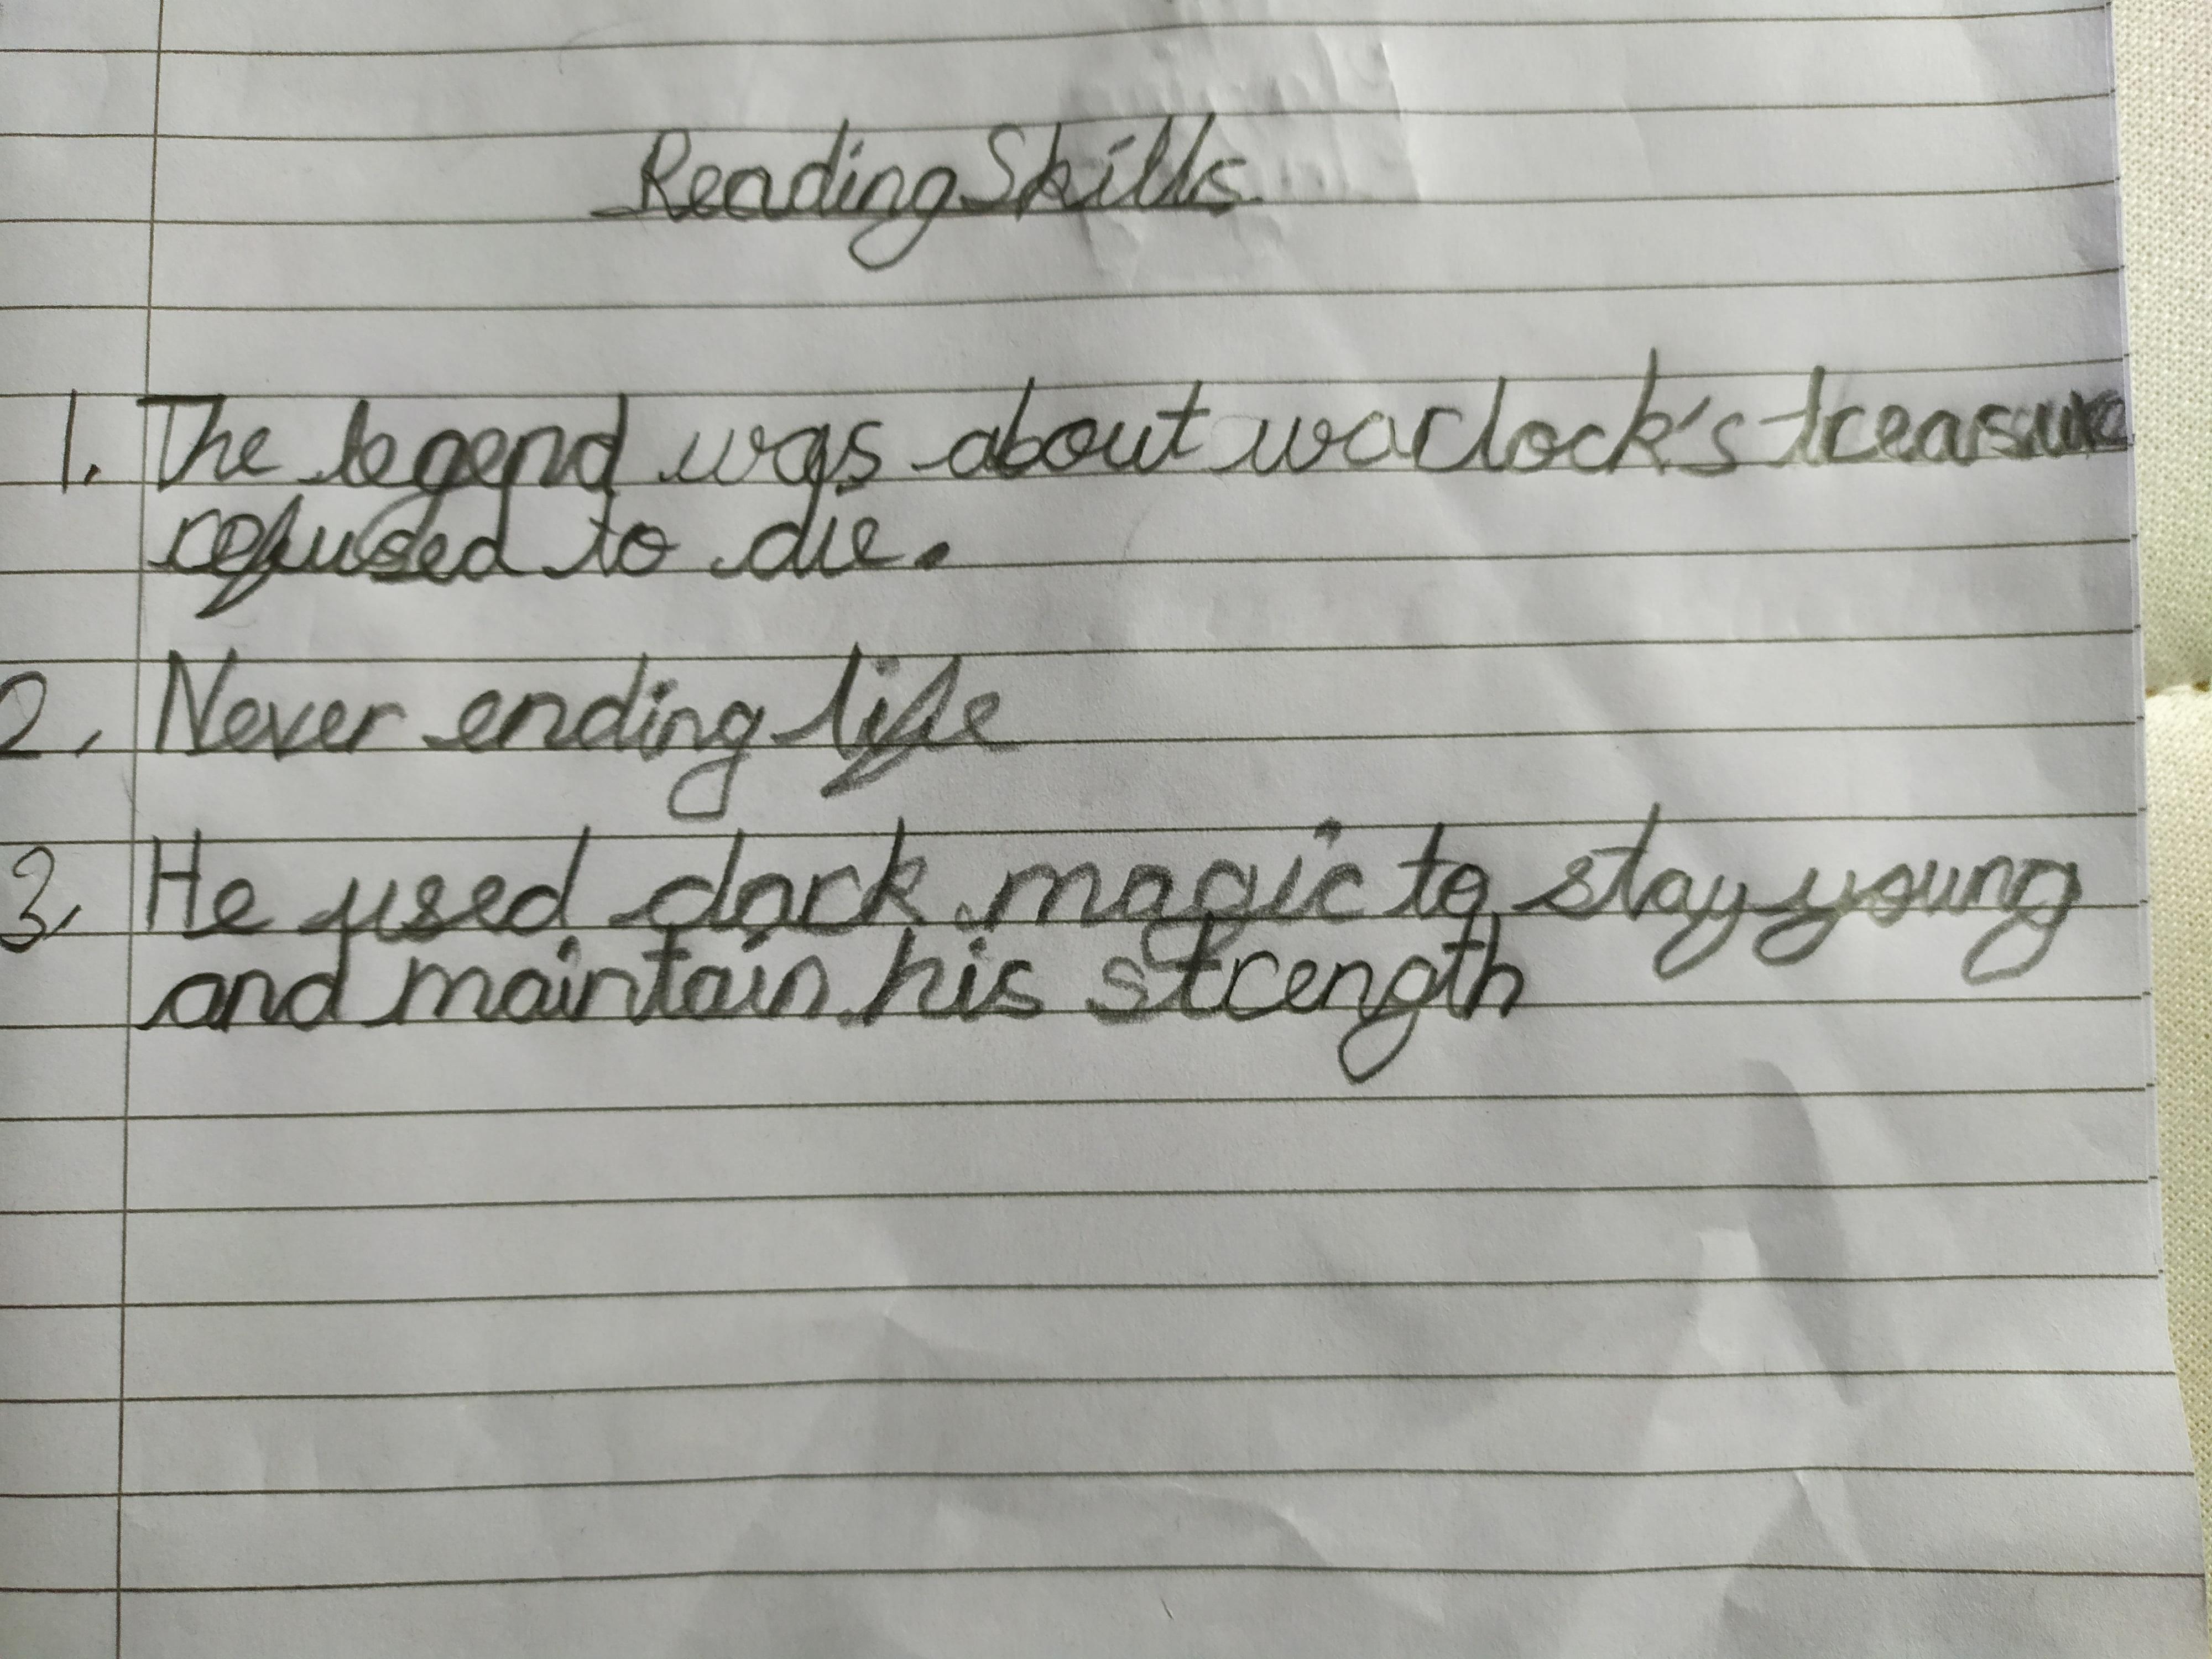 Reading Skills
1. The legend was about warlock's treasure
refused to die.
2. Never ending life
3. He used dark magic to stay young
and maintain his strength